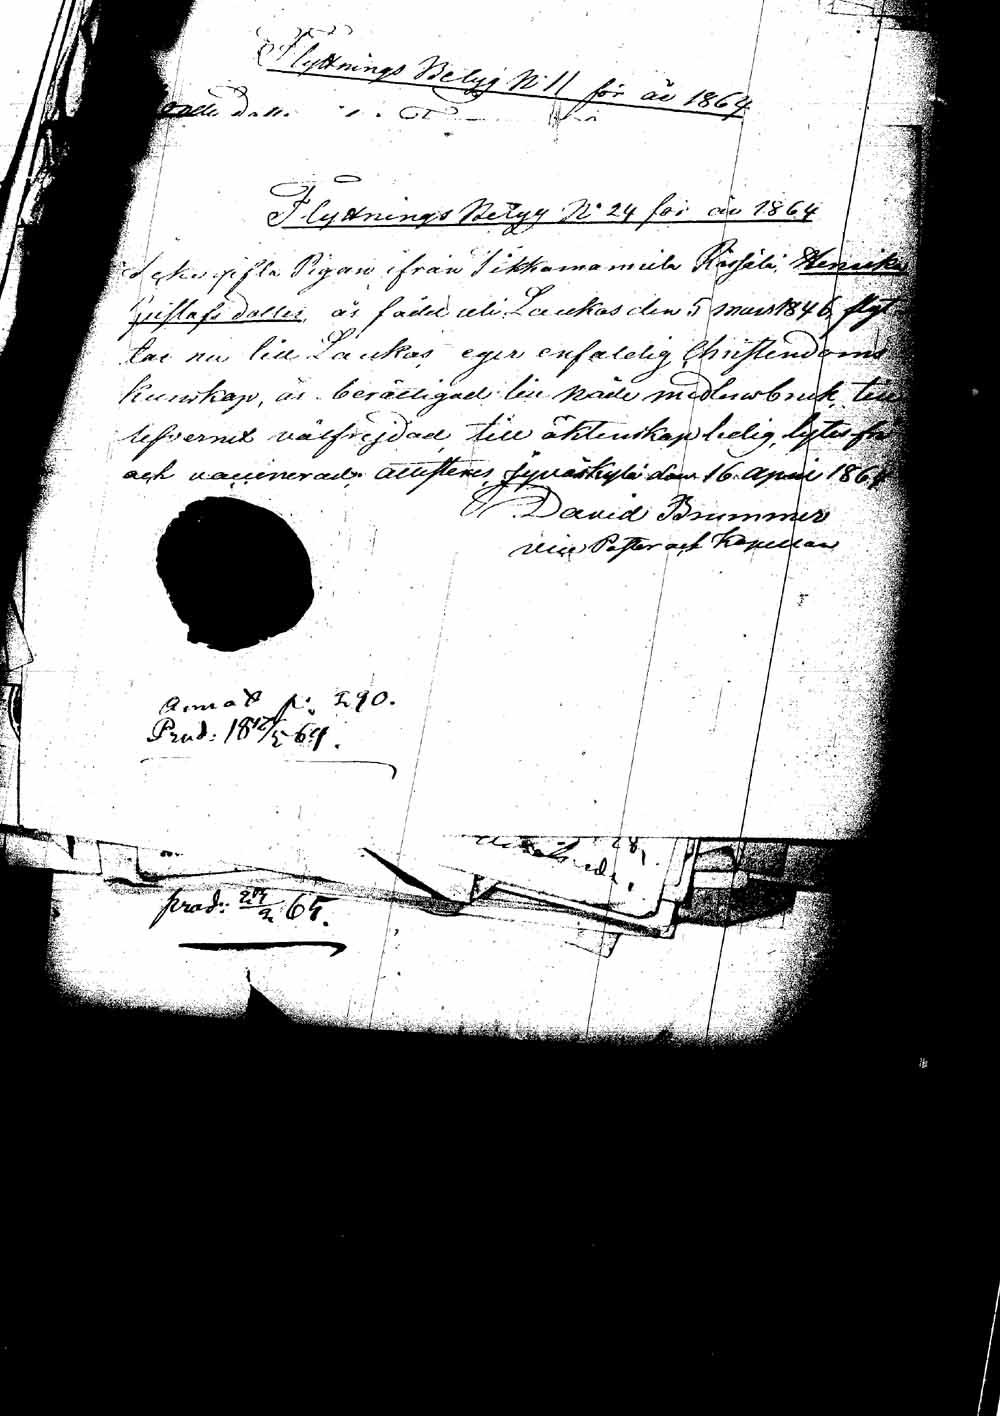 Flyttnings Betyg No 11 för år 1864
Flyttnings Betyg No 24 för år 1864
Pigan ifrån Tikkamannila Henrika
Gustafs dotter, är född uti Laukas den 5 mars 1846, flyt-
tar nu till Laukas, eger enfaldig Christendoms
kunskap, är berättigad till nåde medlens bruk, till
lefvernet välfrejdad, till äktenskap ledig, lytes fri
och vaccinerad; attesteras, Jyväskylä den 16 April 1864
David Brummer
vice Pastor och Kapellan
p: 290.
Prod: 18 12/5 64.
prod: